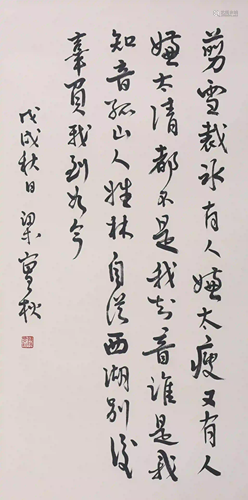 剪雪裁冰有人嫌太瘦又有人
嫌太清都不是我知音谁是我
知音孤山人姓林自從西湖别後
辜负我到如今
戊戌秋日梁實秋